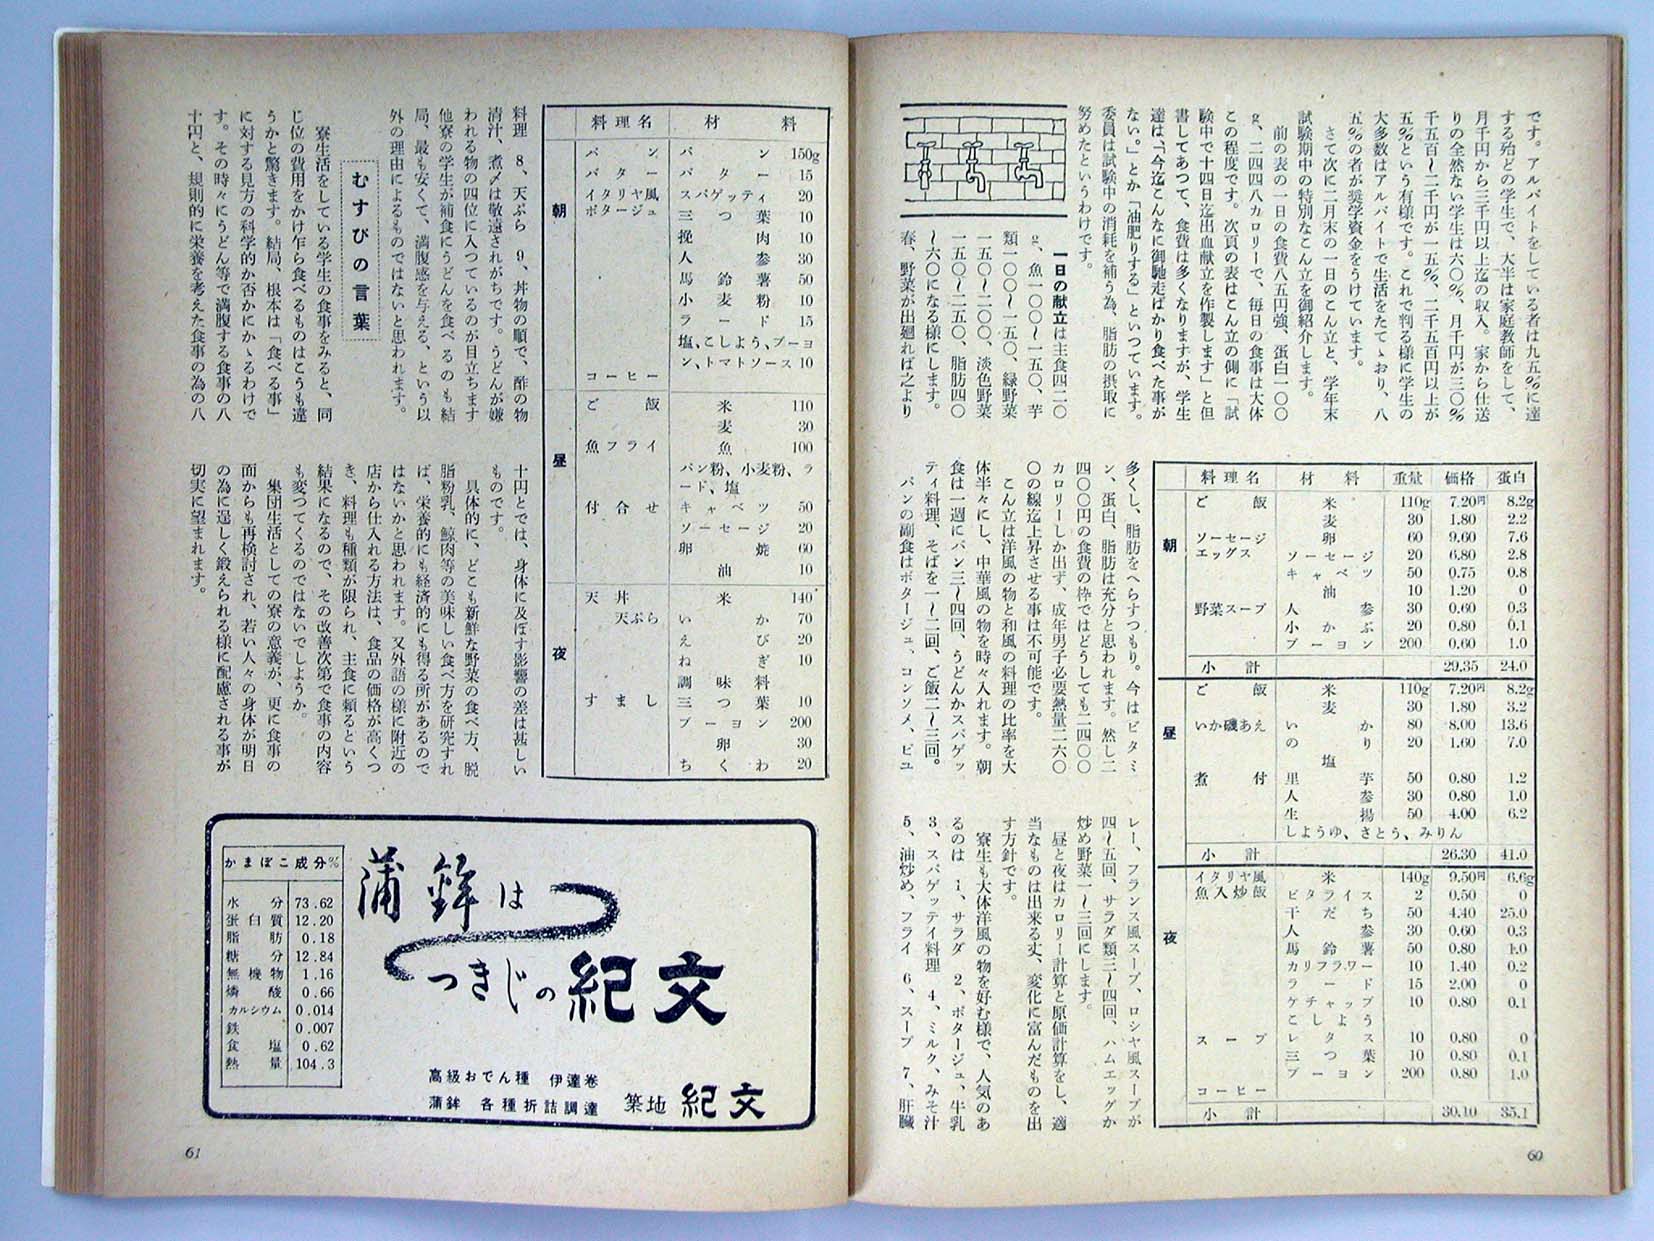 です。アルバイトをしている者は九五％に達
する殆どの学生で、大半は家庭教師をして、
月千円から三千円以上迄の収入。家から仕送
りの全然ない学生は六〇％、月千円が三〇％
千五百〜二千円が一五％、二千五百円以上が
五％という有様です。これで判る様に学生の
大多数はアルバイトで生活をたてゝおり、八
五％の者が奨学資金をうけています。
さて次に二月末の一日のこん立と、学年末
試験期中の特別なこん立を御紹介します。
前の表の一日の食費八五円強、蛋白一〇〇
g、二四四八カロリーで、毎日の食事は大体
この程度です。次頁の表はこん立の側に「試
験中で十四日迄出血献立を作製します」と但
書してあつて、食費は多くなりますが、学生
達は「今迄こんなに御馳走ばかり食べた事が
ない。」とか「油肥りする」といつています。
委員は試験中の消耗を補う為、脂肪の摂取に
努めたというわけです。
一日の献立は主食四二〇
g、魚一〇〇〜一五〇、芋
類一〇〇〜一五〇、緑野菜
一五〇〜二〇〇、淡色野菜
一五〇〜二五〇、脂肪四〇
〜六〇になる様にします。
春、野菜が出廻れば之より
多くし、脂肪をへらすつもり。今はビタミ
ン、蛋白、脂肪は充分と思われます。然し二
四〇〇円の食費の枠ではどうしても二四〇〇
カロリーしか出ず、成年男子必要熱量二六〇
〇の線迄上昇させる事は不可能です。
こん立は洋風の物と和風の料理の比率を大
体半々にし、中華風の物を時々入れます。朝
食は一週にパン三〜四回、うどんかスパゲッ
ティ料理、そばを一〜二回、ご飯二〜三回。
パンの副食はポタージュ、コンソメ、ピユ
レー、フランス風スープ、ロシヤ風スープが
四〜五回、サラダ類三〜四回、ハムエッグか
炒め野菜一〜三回にします。
昼と夜はカロリー計算と原価計算をし、適
当なものは出来る丈、変化に富んだものを出
す方針です。
寮生も大体洋風の物を好む様で、人気のあ
るのは 1、サラダ 2、ポタージュ、牛乳
3、スパゲッテイ料理 4、ミルク、みそ汁
5、油炒め、フライ 6、スープ 7、肝臓
料理名 材料 重量 価格 蛋白
朝
ご飯 米 110g 7.20円 8.2g
麦 30 1.80 2.2
ソーセージ 卵 60 9.60 7.6
エッグス ソーセージ 20 6.80 2.8
キャベツ 50 0.75 0.8
油 10 1.20 0
野菜スープ 人参 30 0.60 0.3
小かぶ 20 0.80 0.1
ブーヨン 200 0.60 1.0
小計 29.35 24.0
昼
ご飯 米 110g 7.20円 8.2g
麦 30 1.80 3.2
いか磯あえ いか 80 8.00 13.6
のり 20 1.60 7.0
塩
煮付 里芋 50 0.80 1.2
人参 30 0.80 1.0
生揚 50 4.00 6.2
しようゆ、さとう、みりん
小計 26.30 41.0
夜
イタリヤ風 米 140g 9.50円 6.6g
魚入炒飯 ビタライス 2 0.50 0
干だち 50 4.40 25.0
人参 30 0.60 0.3
馬鈴薯 50 0.80 1.0
カリフラワー 10 1.40 0.2
ラード 15 2.00 0
ケチャップ 10 0.80 0.1
こしよう
スープ レタス 10 0.80 0
三つ葉 10 0.80 0.1
ブーヨン 200 0.80 1.0
コーヒー
小計 30.10 35.1
60
料理名 材料
朝
パン パン 150g
バター バター 15
イタリヤ風 スパゲッティ 20
ポタージュ 三つ葉 10
挽肉 10
人参 30
馬鈴薯 50
小麦粉 10
ラード 15
塩、こしよう、ブーヨ
ン、トマトソース 10
コーヒー
昼
ご飯 米 110
麦 30
魚フライ 魚 100
パン粉、小麦粉、ラ
ード、塩
付合せ キャベツ 50
ソーセージ 20
卵焼 60
油 10
夜
天丼 米 140
天ぷら いか 70
えび 20
ねぎ 10
調味料
すまし 三つ葉 10
ブーヨン 200
卵 30
ちくわ 20
料理 8、天ぷら 9、丼物の順で、酢の物
清汁、煮〆は敬遠されがちです。うどんが嫌
われる物の四位に入つているのが目立ちます
他寮の学生が補食にうどんを食べるのも結
局、最も安くて、満腹感を与える、という以
外の理由によるものではないと思われます。
むすびの言葉
寮生活をしている学生の食事をみると、同
じ位の費用をかけ乍ら食べるものはこうも違
うかと驚きます。結局、根本は「食べる事」
に対する見方の科学的か否かにかゝるわけで
す。その時々にうどん等で満腹する食事の八
十円と、規則的に栄養を考えた食事の為の八
十円とでは、身体に及ぼす影響の差は甚しい
ものです。
具体的に、どこも新鮮な野菜の食べ方、脱
脂粉乳、鯨肉等の美味しい食べ方を研究すれ
ば、栄養的にも経済的にも得る所があるので
はないかと思われます。又外語の様に附近の
店から仕入れる方法は、食品の価格が高くつ
き、料理も種類が限られ、主食に頼るという
結果になるので、その改善次第で食事の内容
も変つてくるのではないでしようか。
集団生活としての寮の意義が、更に食事の
面からも再検討され、若い人々の身体が明日
の為に逞しく鍛えられる様に配慮される事が
切実に望まれます。
かまぼこ成分%
水分 73.62
蛋白質 12.20
脂肪 0.18
糖分 12.84
無機物 1.16
燐酸 0.66
カルシウム 0.014
鉄 0.007
食塩 0.62
熱量 104.3
蒲鉾は
つきじの紀文
高級おでん種 伊達巻
蒲鉾 各種折詰調達
築地 紀文
61